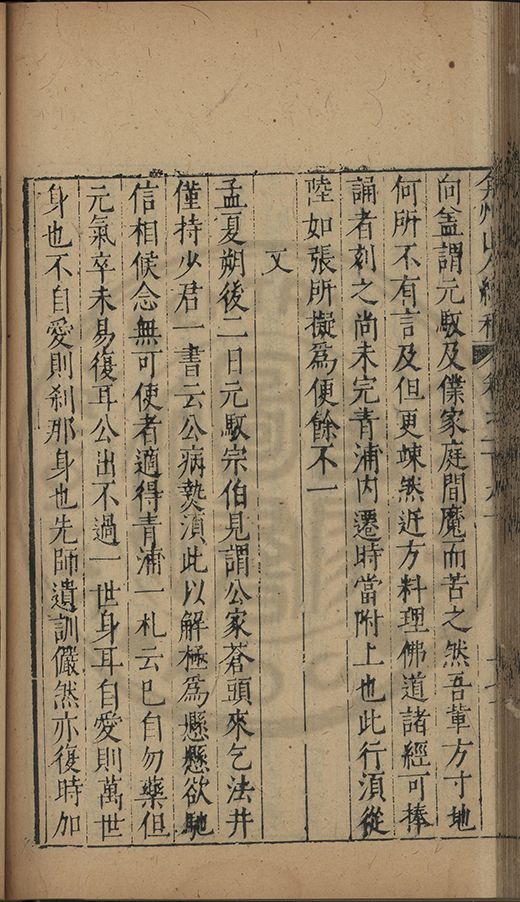 弇州山人續稿 卷之一百
向盍謂元馭及僕家庭間魔而苦之然吾輩方寸地
何所不有言及但更竦然近方料理佛道諸經可捧
誦者刻之尚未完青浦内遷時當附上也此行須從
陸如張所擬爲便餘不一
又
孟夏朔後二日元馭宗伯見謂公家蒼頭來乞法井
僅持少君一書云公病熱湏此以解極爲懸懸欲馳
信相候念無可使者適得青浦一札云已自勿藥但
元氣卒未易復耳公出不過一世身耳自愛則萬世
身也不自愛則刹那身也先師遺訓儼然亦復時加